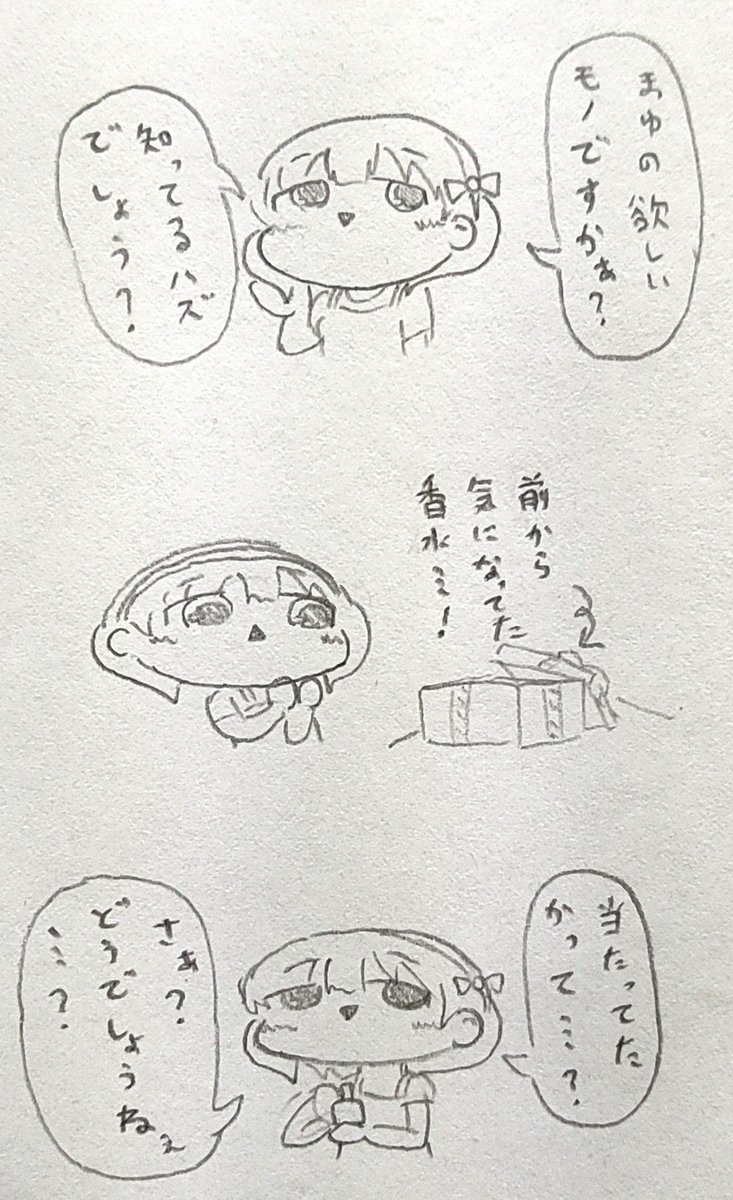 まゆの欲しい
モノですかぁ?
知ってるハズ
でしょう?
前から
気になってた
香水…!
当たってた
かって…?
さぁ?
どうでしょうねぇ
…?